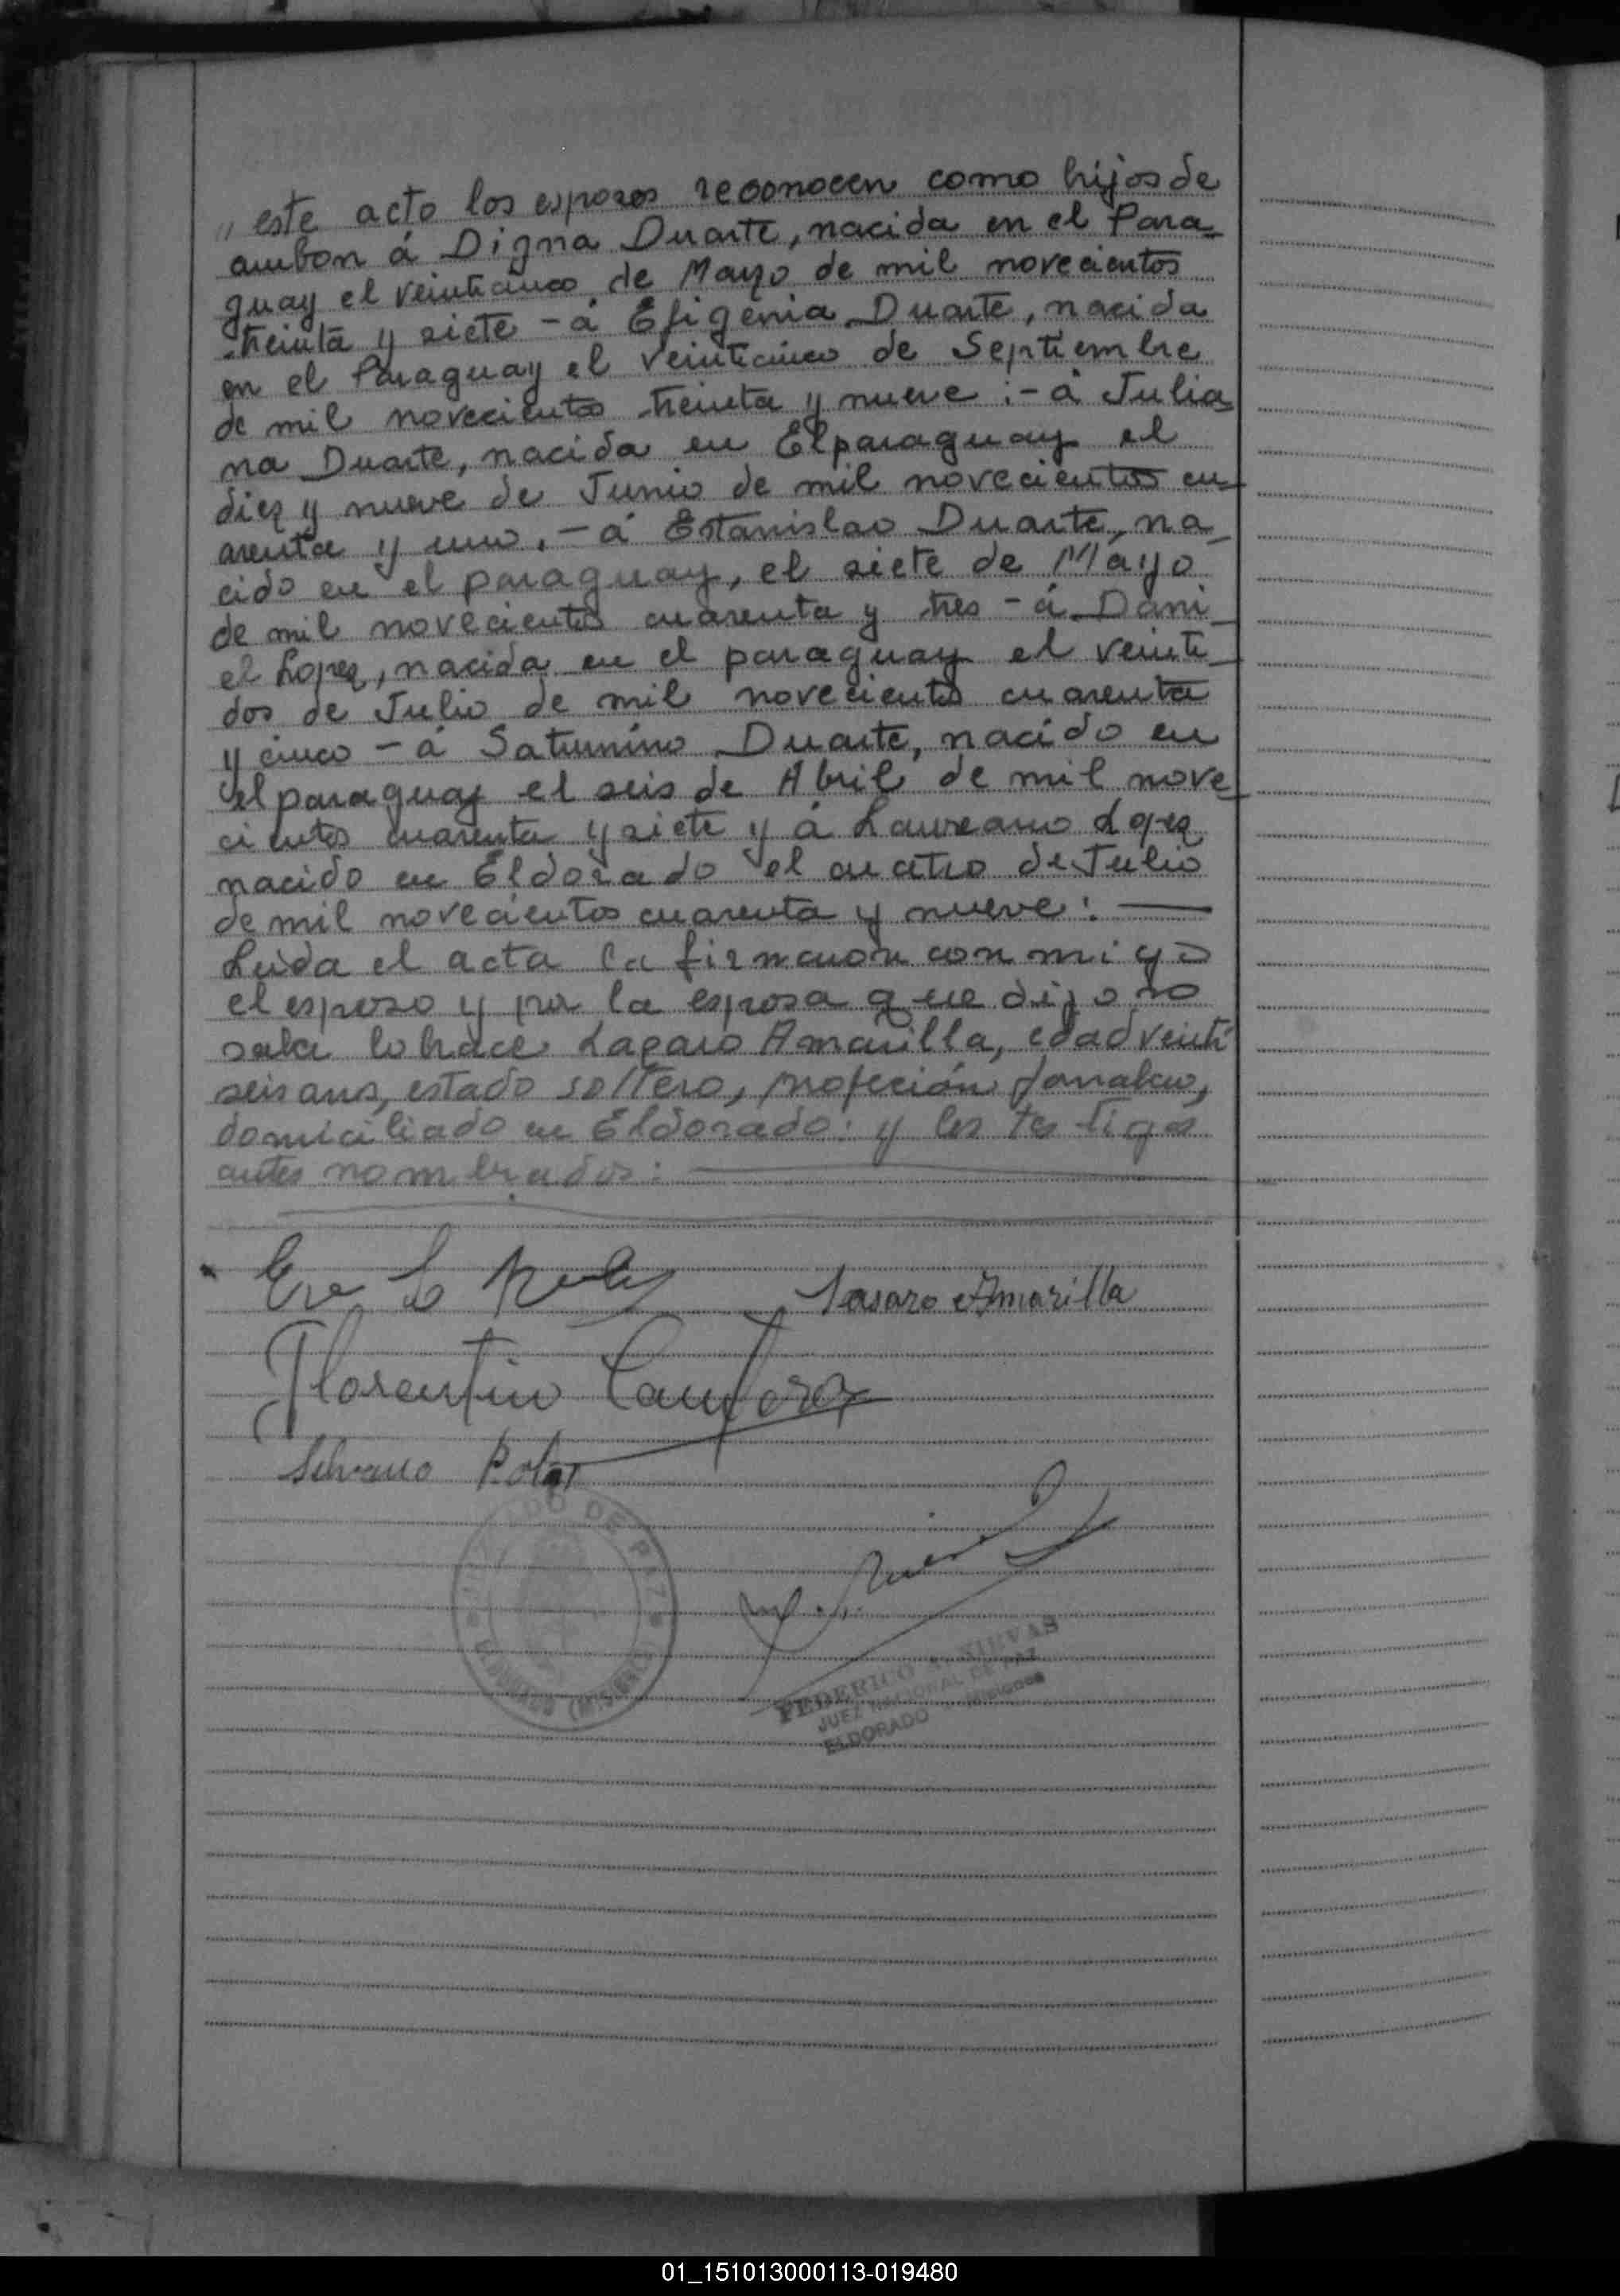 " este acto los esposos reconocen como hijos de
ambon á Digna Duarte, nacida en el Para-
guay el veinticinco de Mayo de mil novecientos
treinta y siete - á Efigenia Duarte, nacida
en el Paraguay el veinticinco de Septiembre
de mil novecientos treinta y nueve ; - á Julia-
na Duarte, nacida en El paraguay el
diez y nueve de Junio de mil novecientos cu-
arenta y uno, - á Estanislao Duarte, na-
cido en el paraguay, el siete de Mayo
de mil novecientos cuarenta y tres - á Dani-
el Lopez, nacida en el paraguay el veinti-
dos de Julio de mil novecientos cuarenta
y cinco - á Saturnino Duarte, nacido en
el paraguay el seis de Abril de mil nove-
cientos cuarenta y siete y á Laureano Lopez
nacido en Eldorado el cuatro de Julio
de mil novecientos cuarenta y nueve : —
Leida el acta la firmaron con migo
el esposo y por la esposa que dijo no
saber lo hace Lazaro Amarilla, edad veinti
seis anos, estado soltero, profeción
domiciliado en Eldorado : y los testigos
antes nombrados : —
Lasaro Amarilla
Florentin
Silvano
DO DE PAZ
ELDORADO (MISIONES)
FEDERICO A. NIEVAS
JUEZ NACIONAL DE PAZ
ELDORADO - Misiones
01_151013000113-019480